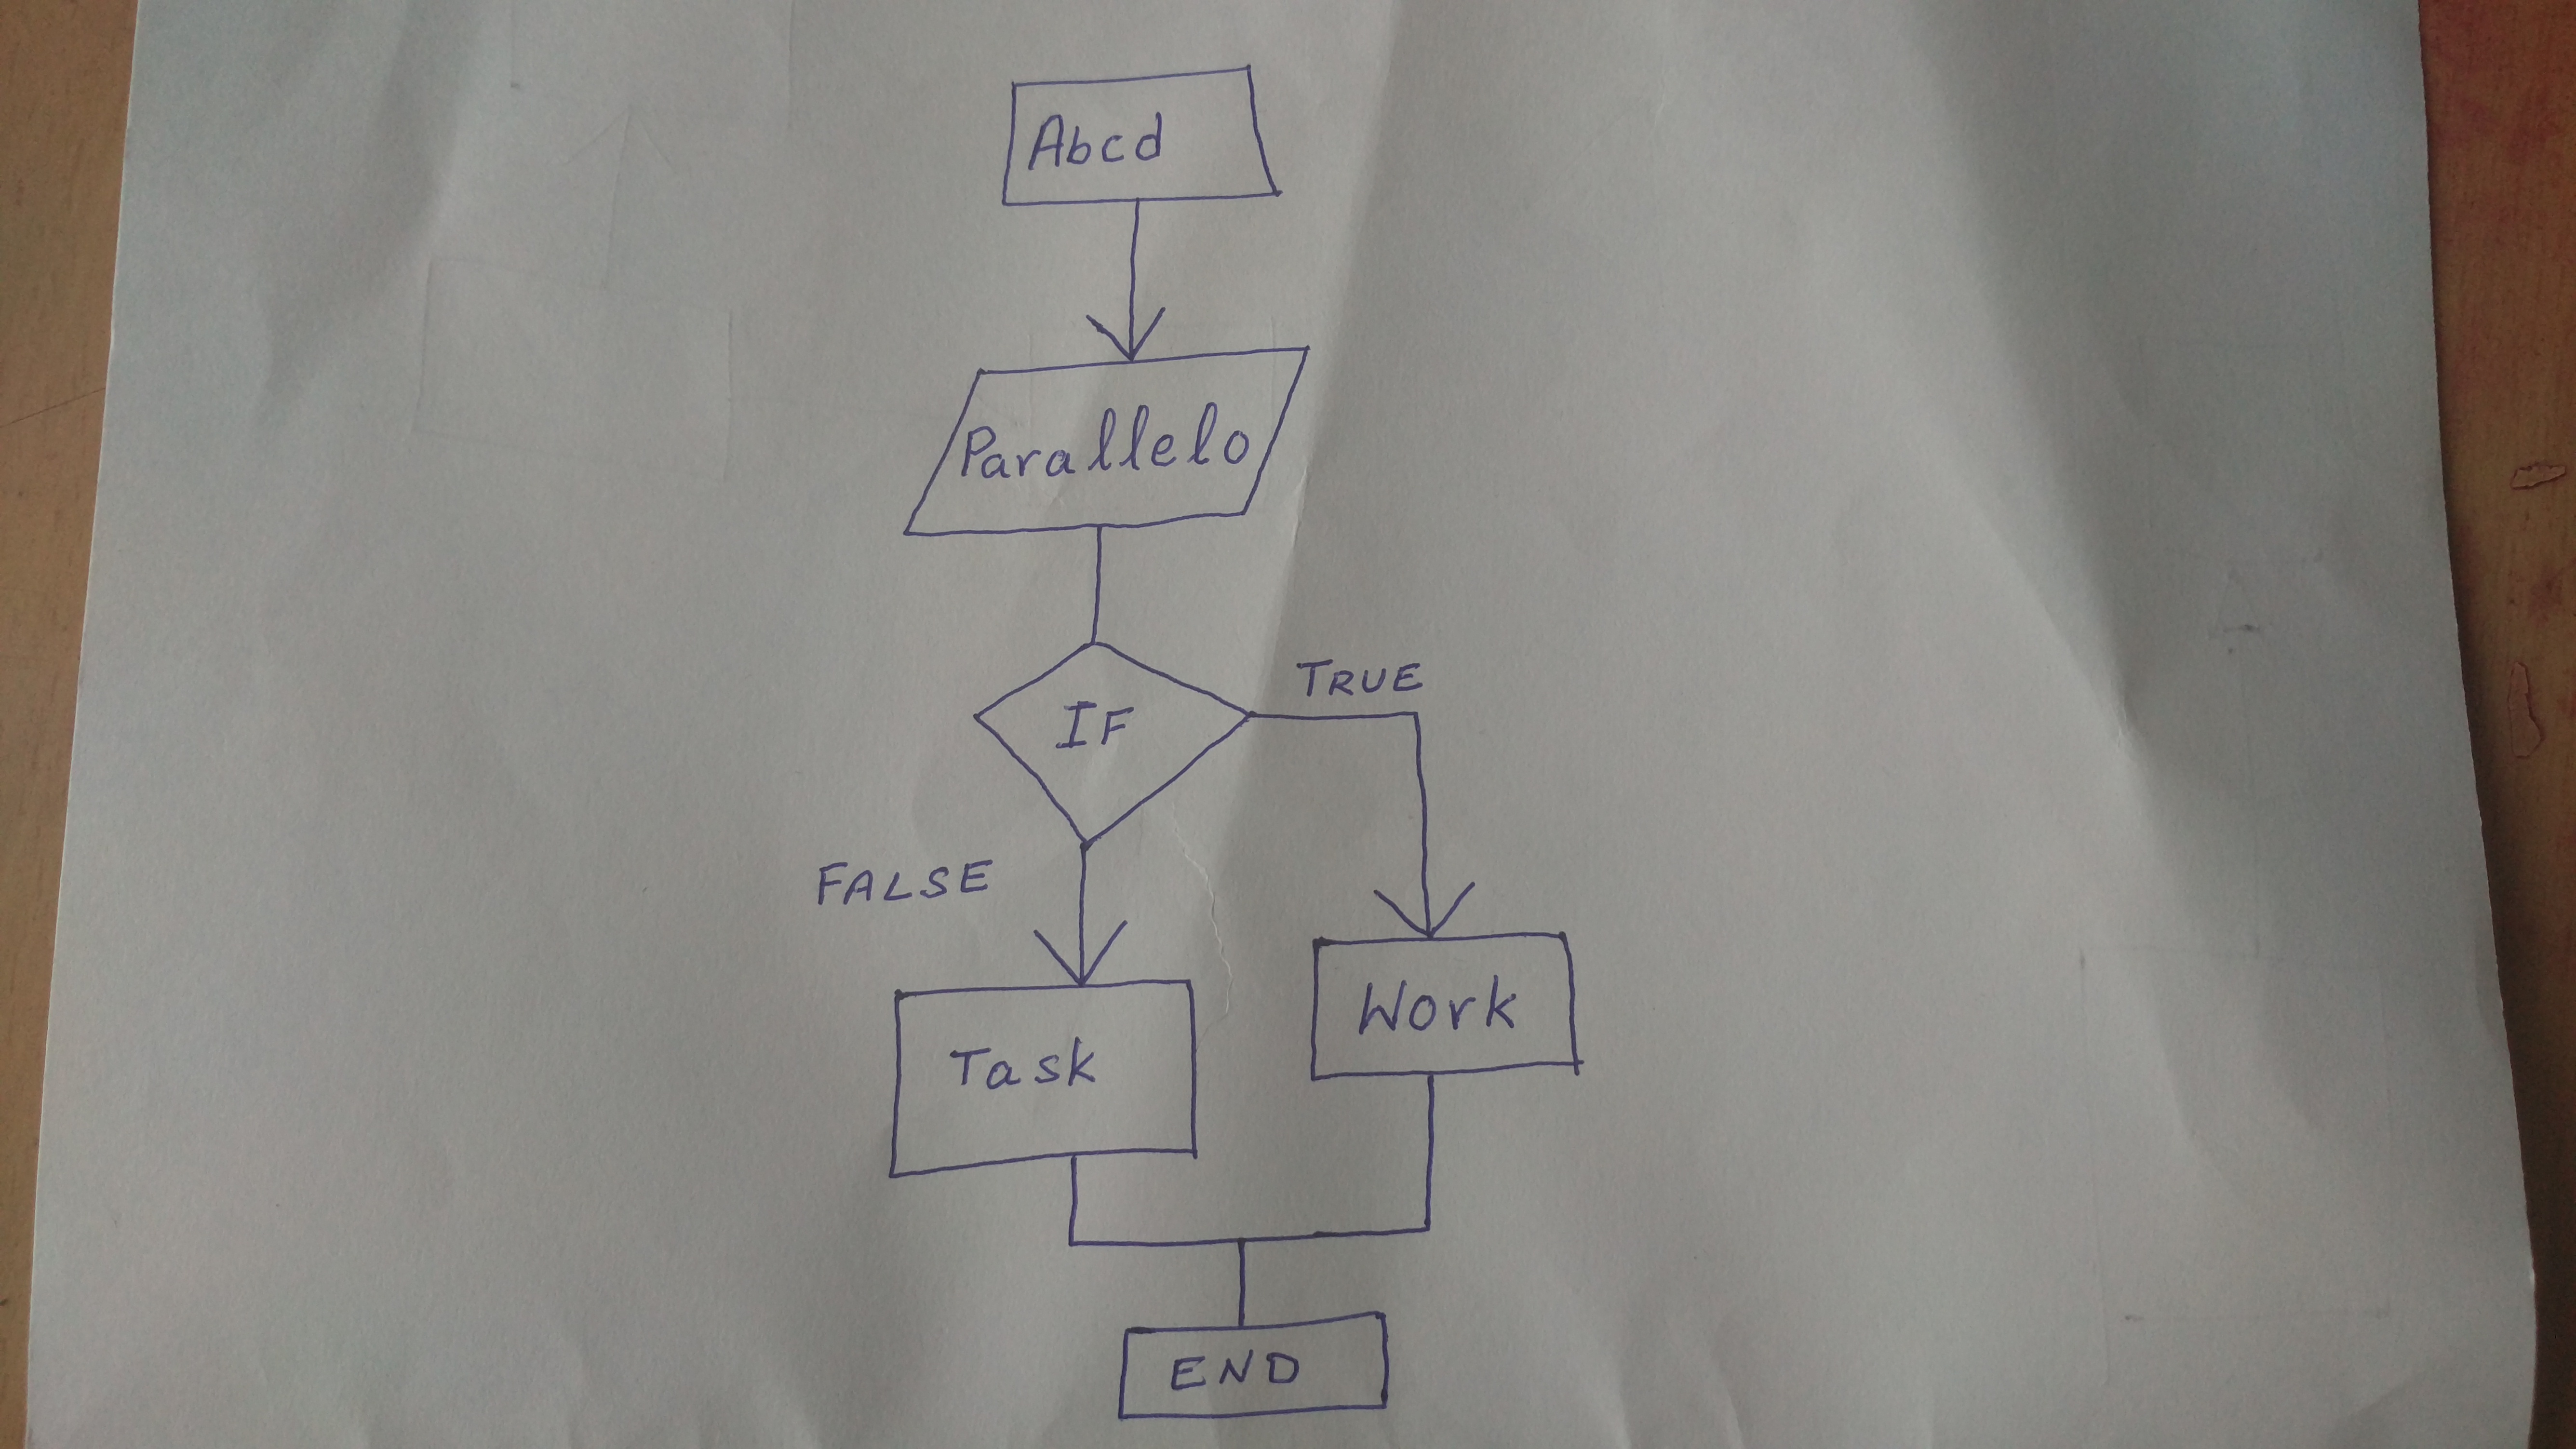 Abcd
Parallelo
IF
TRUE
FALSE
Work
Task
END